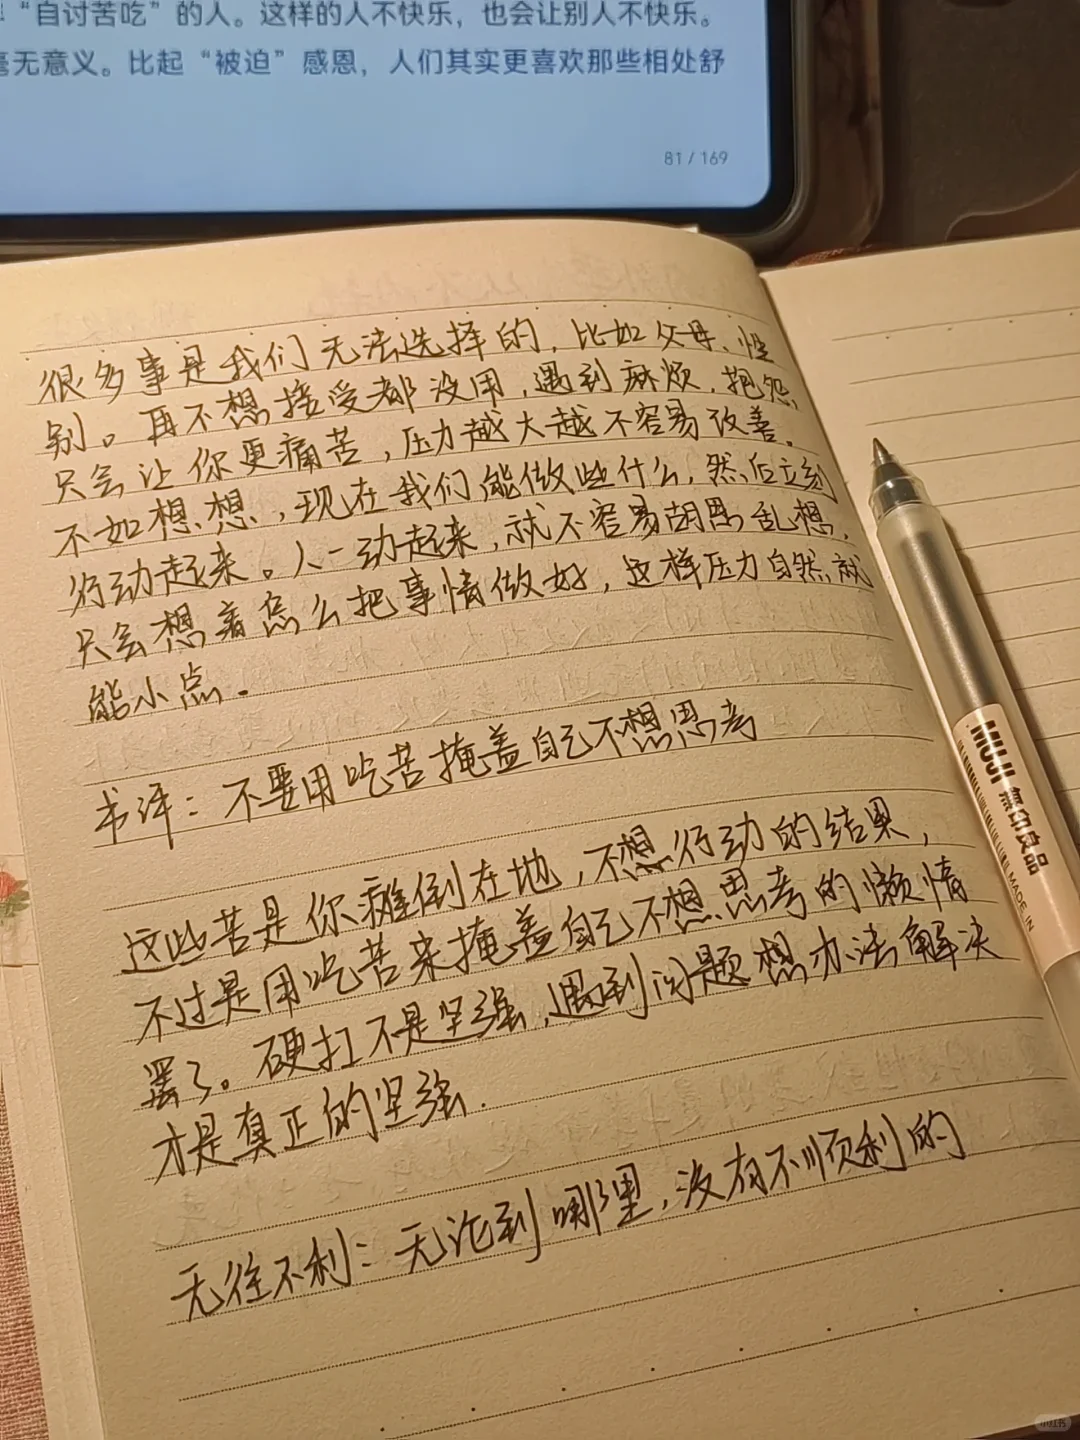 “自讨苦吃”的人。这样的人不快乐，也会让别人不快乐。
毫无意义。比起“被迫”感恩，人们其实更喜欢那些相处舒
81 / 169
很多事是我们无法选择的，比如父母、性
别。再不想接受都没用，遇到麻烦，抱怨
只会让你更痛苦，压力越大越不容易改善。
不如想想，现在我们能做些什么，然后立刻
行动起来。人一动起来，就不容易胡思乱想，
只会想着怎么把事情做好，这样压力自然就
能小点.
书评：不要用吃苦掩盖自己不想思考
这些苦是你瘫倒在地，不想行动的结果，
不过是用吃苦来掩盖自己不想思考的懒惰
罢了。硬扛不是坚强，遇到问题想办法解决
才是真正的坚强.
无往不利：无论到哪里，没有不顺利的
MUJI 無印良品
MADE IN
小红书